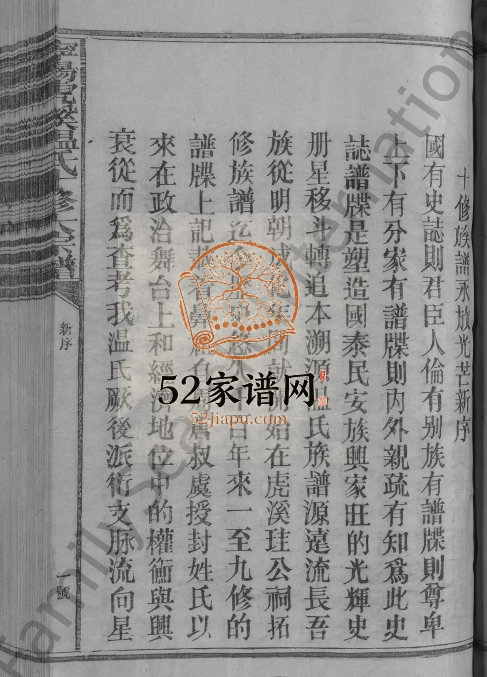 十修族譜永放光芒新序
國有史誌則君臣人倫有别族有譜牒則尊卑
上下有分家有譜牒則内外親疏有知為此史
誌譜牒是塑造國泰民安族興家旺的光輝史
册星移斗轉追本溯源温氏族譜源遠流長吾
族從明朝成 年間 開始在虎溪珪公祠拓
修族譜迄今 悠 百年來一至九修的
譜牒上記載着 温 自 唐叔虞授封姓氏以
來在政治舞台上和經濟地位中的權衡與興
衰從而爲查考我温氏厥後派衍支脉流向星
虎溪温氏 修 譜
新序
一號
52家谱网
52jiapu.com
FamilySearch International